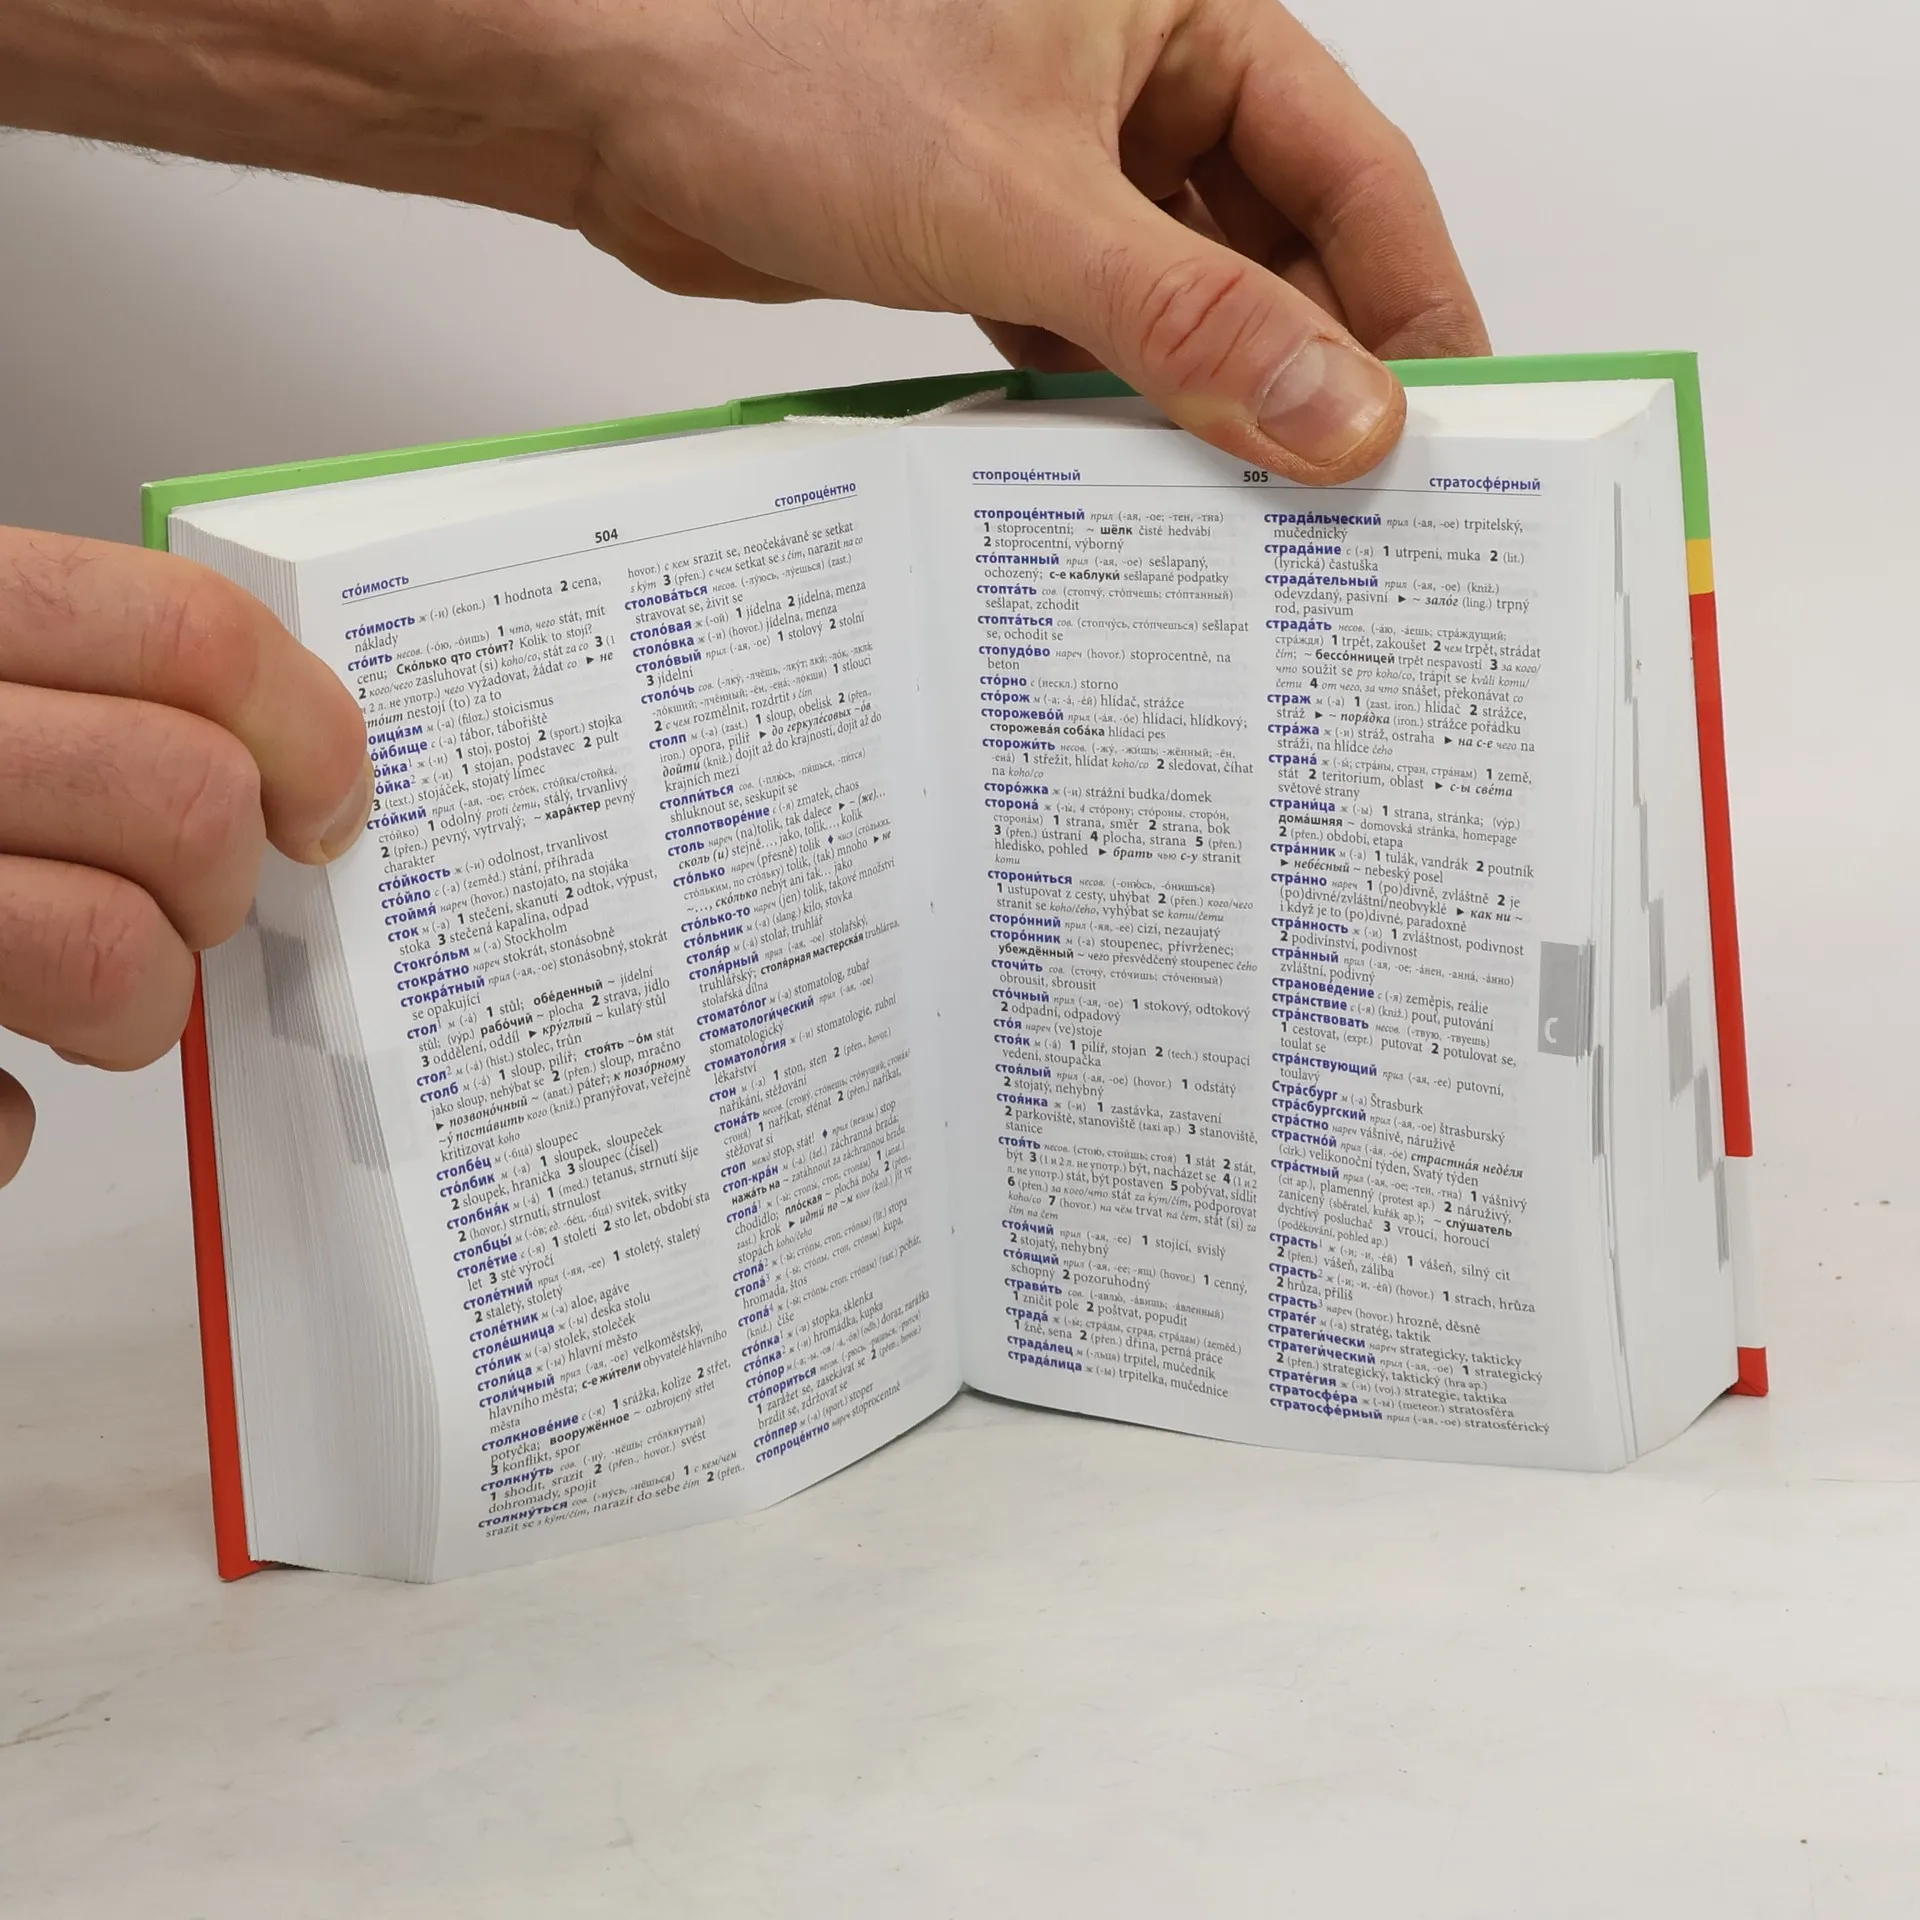 504
сто́имость
стопроце́нтно
сто́имость ж (-и) (ekon.) 1 hodnota 2 cena,
náklady
сто́ить несов. (-о́ю, -о́ишь) 1 что, чего stát, mít
cenu; Ско́лько э́то сто́ит? Kolik to stojí?
2 кого/чего zasluhovat (si) koho/co, stát za co 3 (1
и 2 л. не употр.) чего vyžadovat, žádat co ► не
nestojí (to) za to
м (-а) (filoz.) stoicismus
с (-а) tábor, tábořiště
ж (-и) 1 stoj, postoj 2 (sport.) stojka
ж (-и) 1 stojan, podstavec 2 pult
3 (text.) stojáček, stojatý límec
сто́йкий прил (-ая, -ое; сто́ек, сто́йка/стойка́,
сто́йко) 1 odolný proti čemu, stálý, trvanlivý
2 (přen.) pevný, vytrvalý; ~ хара́ктер pevný
charakter
сто́йкость ж (-и) odolnost, trvanlivost
сто́йло с (-а) (zeměd.) stání, příhrada
стоймя́ нареч (hovor.) nastojato, na stojáka
сток м (-а) 1 stečení, skanutí 2 odtok, výpust,
stoka 3 stečená kapalina, odpad
Стокго́льм м (-а) Stockholm
стокра́тно нареч stokrát, stonásobně
стокра́тный прил (-ая, -ое) stonásobný, stokrát
se opakující
стол¹ м (-а́) 1 stůl; обе́денный ~ jídelní
stůl; (výp.) рабо́чий ~ plocha 2 strava, jídlo
3 oddělení, oddíl ► кру́глый ~ kulatý stůl
стол² м (-а́) (hist.) stolec, trůn
столб м (-а́) 1 sloup, pilíř; стоя́ть ~о́м stát
jako sloup, nehýbat se 2 (přen.) sloup, mračno
► позвоно́чный ~ (anat.) páteř; к позо́рному
~у́ поста́вить кого (kniž.) pranýřovat, veřejně
kritizovat koho
столбе́ц м (-бца́) sloupec
сто́лбик м (-а) 1 sloupek, sloupeček
2 sloupek, hranička 3 sloupec (čísel)
столбня́к м (-а́) 1 (med.) tetanus, strnutí šíje
2 (hovor.) strnutí, strnulost
столбцы́ м (-о́в; ед. -бе́ц, -бца́) svitek, svitky
столе́тие с (-я) 1 století 2 sto let, období sta
let 3 sté výročí
столе́тний прил (-яя, -ее) 1 stoletý, staletý
2 staletý, stoletý
столе́тник м (-а) aloe, agáve
столе́шница ж (-ы) deska stolu
сто́лик м (-а) stolek, stoleček
столи́ца ж (-ы) hlavní město
столи́чный прил (-ая, -ое) velkoměstský,
hlavního města; с-е жи́тели obyvatelé hlavního
města
столкнове́ние с (-я) 1 srážka, kolize 2 střet,
potyčka; вооружённое ~ ozbrojený střet
3 konflikt, spor
столкну́ть сов. (-ну́, -нёшь; сто́лкнутый)
1 shodit, srazit 2 (přen., hovor.) svést
dohromady, spojit
столкну́ться сов. (-ну́сь, -нёшься) 1 с кем/чем
srazit se s kým/čím, narazit do sebe čím 2 (přen.,
hovor.) с кем srazit se, neočekávaně se setkat
s kým 3 (přen.) с чем setkat se s čím, narazit na co
столова́ться несов. (-лу́юсь, -лу́ешься) (zast.)
stravovat se, živit se
столо́вая ж (-ой) 1 jídelna 2 jídelna, menza
столо́вка ж (-и) (hovor.) jídelna, menza
столо́вый прил (-ая, -ое) 1 stolový 2 stolní
3 jídelní
столо́чь сов. (-лку́, -лчёшь, -лку́т; -лки́; -ло́к, -лкла́;
-ло́кший; -лчённый; -ён, -ена́; -ло́кши) 1 stlouci
2 с чем rozmělnit, rozdrtit s čím
столп м (-а́) (zast.) 1 sloup, obelisk 2 (přen.,
iron.) opora, pilíř ► до геркуле́совых ~о́в
дойти́ (kniž.) dojít až do krajnosti, dojít až do
krajních mezí
столпи́ться сов. (-плю́сь, -пи́шься, -пи́тся)
shluknout se, seskupit se
столпотворе́ние с (-я) zmatek, chaos
столь нареч (na)tolik, tak dalece ► ~ (же)...
сколь (и) stejně..., jako, tolik..., kolik
сто́лько нареч (přesně) tolik ♦ числ (сто́льких,
сто́льким, по сто́льку) tolik, (tak) mnoho ► не
~..., ско́лько nebýt ani tak..., jako
сто́лько-то нареч (jen) tolik, takové množství
сто́льник м (-а) (slang.) kilo, stovka
столя́р м (-а́) stolař, truhlář
столя́рный прил (-ая, -ое) stolařský,
truhlářský; столя́рная мастерска́я truhlárna,
stolařská dílna
стомато́лог м (-а) stomatolog, zubař
стоматологи́ческий прил (-ая, -ое)
stomatologický
стоматоло́гия ж (-и) stomatologie, zubní
lékařství
стон м (-а) 1 ston, sten 2 (přen., hovor.)
naříkání, stěžování
стона́ть несов. (стону́, сто́нешь; сто́нущий; стона́я/
стоня́) 1 naříkat, sténat 2 (přen.) naříkat,
stěžovat si
стоп межд stop, stát! ♦ прил (неизм.) stop
стоп-кра́н м (-а) (žel.) záchranná brzda;
нажа́ть на ~ zatáhnout za záchrannou brzdu
стопа́¹ ж (-ы́; сто́пы, стоп, стопа́м) 1 (anat.)
chodidlo; пло́ская ~ plochá noha 2 (přen.,
zast.) krok ► идти́ по ~м кого (kniž.) jít ve
stopách koho/čeho
стопа́² ж (-ы́; сто́пы, стоп, стопа́м) (lit.) stopa
стопа́³ ж (-ы́; сто́пы, стоп, стопа́м) kupa,
hromada, štos
стопа́⁴ ж (-ы́; сто́пы, стоп, стопа́м) (zast.) pohár,
(kniž.) číše
сто́пка¹ ж (-и) stopka, sklenka
сто́пка² ж (-и) hromádka, kupka
сто́пор м
сто́пориться несов. (-рюсь, -ришься, -рится)
1 zarážet se, zasekávat se 2 (přen., hovor.)
brzdit se, zdržovat se
сто́ппер м (-а) (sport.) stoper
стопроце́нтно нареч stoprocentně
стопроце́нтный
505
стратосфе́рный
стопроце́нтный прил (-ая, -ое; -тен, -тна)
1 stoprocentní; ~ шёлк čisté hedvábí
2 stoprocentní, výborný
сто́птанный прил (-ая, -ое) sešlapaný,
ochozený; с-е каблуки́ sešlapané podpatky
стопта́ть сов. (стопчу́, сто́пчешь; сто́птанный)
sešlapat, zchodit
стопта́ться сов. (стопчу́сь, сто́пчешься) sešlapat
se, ochodit se
стопудо́во нареч (hovor.) stoprocentně, na
beton
сто́рно с (нескл.) storno
сто́рож м (-а; -а́, -е́й) hlídač, strážce
сторожево́й прил (-а́я, -о́е) hlídací, hlídkový;
сторожева́я соба́ка hlídací pes
сторожи́ть несов. (-жу́, -жи́шь; -жённый; -ён,
-ена́) 1 střežit, hlídat koho/co 2 sledovat, číhat
na koho/co
сторо́жка ж (-и) strážní budka/domek
сторона́ ж (-ы́, 4 сто́рону; сто́роны, сторо́н,
сторона́м) 1 strana, směr 2 strana, bok
3 (přen.) ústraní 4 plocha, strana 5 (přen.)
hledisko, pohled ► брать чью с-у stranit
komu
сторони́ться несов. (-оню́сь, -о́нишься)
1 ustupovat z cesty, uhýbat 2 (přen.) кого/чего
stranit se koho/čeho, vyhýbat se komu/čemu
сторо́нний прил (-яя, -ее) cizí, nezaujatý
сторо́нник м (-а) stoupenec, přívrženec;
убеждённый ~ чего přesvědčený stoupenec čeho
сточи́ть сов. (сточу́, сто́чишь; сто́ченный)
obrousit, sbrousit
сто́чный прил (-ая, -ое) 1 stokový, odtokový
2 odpadní, odpadový
сто́я нареч (ve)stoje
стоя́к м (-а́) 1 pilíř, stojan 2 (tech.) stoupací
vedení, stoupačka
стоя́лый прил (-ая, -ое) (hovor.) 1 odstátý
2 stojatý, nehybný
стоя́нка ж (-и) 1 zastávka, zastavení
2 parkoviště, stanoviště (taxi ap.) 3 stanoviště,
stanice
стоя́ть несов. (стою́, стои́шь; сто́я) 1 stát 2 stát,
být 3 (1 и 2 л. не употр.) být, nacházet se 4 (1 и 2
л. не употр.) stát, být postaven 5 pobývat, sídlit
6 (přen.) за кого/что stát za kým/čím, podporovat
koho/co 7 (hovor.) на чём trvat na čem, stát (si) za
čím na čem
стоя́чий прил (-ая, -ее) 1 stojící, svislý
2 stojatý, nehybný
стоя́щий прил (-ая, -ее; -ящ) (hovor.) 1 cenný,
schopný 2 pozoruhodný
стравить сов. (-авлю́, -а́вишь; -а́вленный)
1 zničit pole 2 poštvat, popudit
страда́ ж (-ы́; стра́ды, страд, страда́м) (zeměd.)
1 žně, sena 2 (přen.) dřina, perná práce
страда́лец м (-льца) trpitel, mučedník
страда́лица ж (-ы) trpitelka, mučednice
страда́льческий прил (-ая, -ое) trpitelský,
mučednický
страда́ние с (-я) 1 utrpení, muka 2 (lit.)
(lyrická) častuška
страда́тельный прил (-ая, -ое) (kniž.)
odevzdaný, pasivní ► ~ зало́г (ling.) trpný
rod, pasivum
страда́ть несов. (-а́ю, -а́ешь; стра́ждущий;
стра́ждя) 1 trpět, zakoušet 2 чем trpět, strádat
čím; ~ бессо́нницей trpět nespavostí 3 за кого/
что soužit se pro koho/co, trápit se kvůli komu/
čemu 4 от чего, за что snášet, překonávat co
страж м (-а) 1 (zast. iron.) hlídač 2 strážce,
stráž ► ~ поря́дка (iron.) strážce pořádku
стра́жа ж (-и) stráž, ostraha ► на с-е чего na
stráži, na hlídce čeho
страна́ ж (-ы́; стра́ны, стран, стра́нам) 1 země,
stát 2 teritorium, oblast ► с-ы све́та
světové strany
страни́ца ж (-ы) 1 strana, stránka; (výp.)
дома́шняя ~ domovská stránka, homepage
2 (přen.) období, etapa
стра́нник м (-а) 1 tulák, vandrák 2 poutník
► небе́сный ~ nebeský posel
стра́нно нареч 1 (po)divně, zvláštně 2 je
(po)divné/zvláštní/neobvyklé ► как ни ~
i když je to (po)divné, paradoxně
стра́нность ж (-и) 1 zvláštnost, podivnost
2 podivínství, podivnost
стра́нный прил (-ая, -ое; -а́нен, -анна́, -а́нно)
zvláštní, podivný
странове́дение с (-я) zeměpis, reálie
стра́нствие с (-я) (kniž.) pouť, putování
стра́нствовать несов. (-твую, -твуешь)
1 cestovat, (expr.) putovat 2 potulovat se,
toulat se
стра́нствующий прил (-ая, -ее) putovní,
toulavý
Стра́сбург м (-а) Štrasburk
стра́сбургский прил (-ая, -ое) štrasburský
стра́стно нареч vášnivě, náruživě
страстно́й прил (-а́я, -о́е) страстна́я неде́ля
(círk.) velikonoční týden, Svatý týden
стра́стный прил (-ая, -ое; -тен, -тна) 1 vášnivý
(cit ap.), plamenný (protest ap.) 2 náruživý,
zanícený (sběratel, kuřák ap.); ~ слу́шатель
dychtivý posluchač 3 vroucí, horoucí
(poděkování, pohled ap.)
страсть¹ ж (-и; -и, -е́й) 1 vášeň, silný cit
2 (přen.) vášeň, záliba
страсть² ж (-и; -и, -е́й) (hovor.) 1 strach, hrůza
2 hrůza, příliš
страсть³ нареч (hovor.) hrozně, děsně
страте́г м (-а) stratég, taktik
стратеги́чески нареч strategicky, takticky
стратеги́ческий прил (-ая, -ое) 1 strategický
2 (přen.) strategický, taktický (hra ap.)
страте́гия ж (-и) (voj.) strategie, taktika
стратосфе́ра ж (-ы) (meteor.) stratosféra
стратосфе́рный прил (-ая, -ое) stratosférický
С